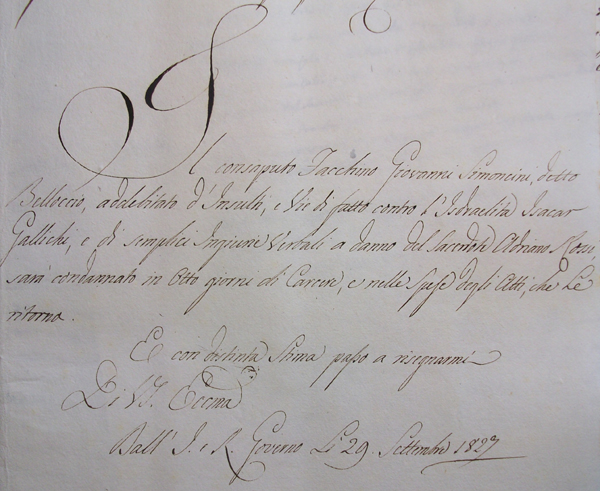 Il consaputo Facchino Giovanni Simoncini, detto
Belloccio, addebitato d'Insulti, e Vie di fatto contro l'Isdraelita Isacar
Gallichi, e di semplici Ingiurie Verbali a danno del Sacerdote Adriano Rossi,
sarà condannato in Otto giorni di Carcere, e nelle Spese degli Atti, che Le
ritorno.
E con distinta Stima passo a risegnarmi
Di V.S. Eccma
Dall' I. e R. Governo Li 29. Settembre 1827